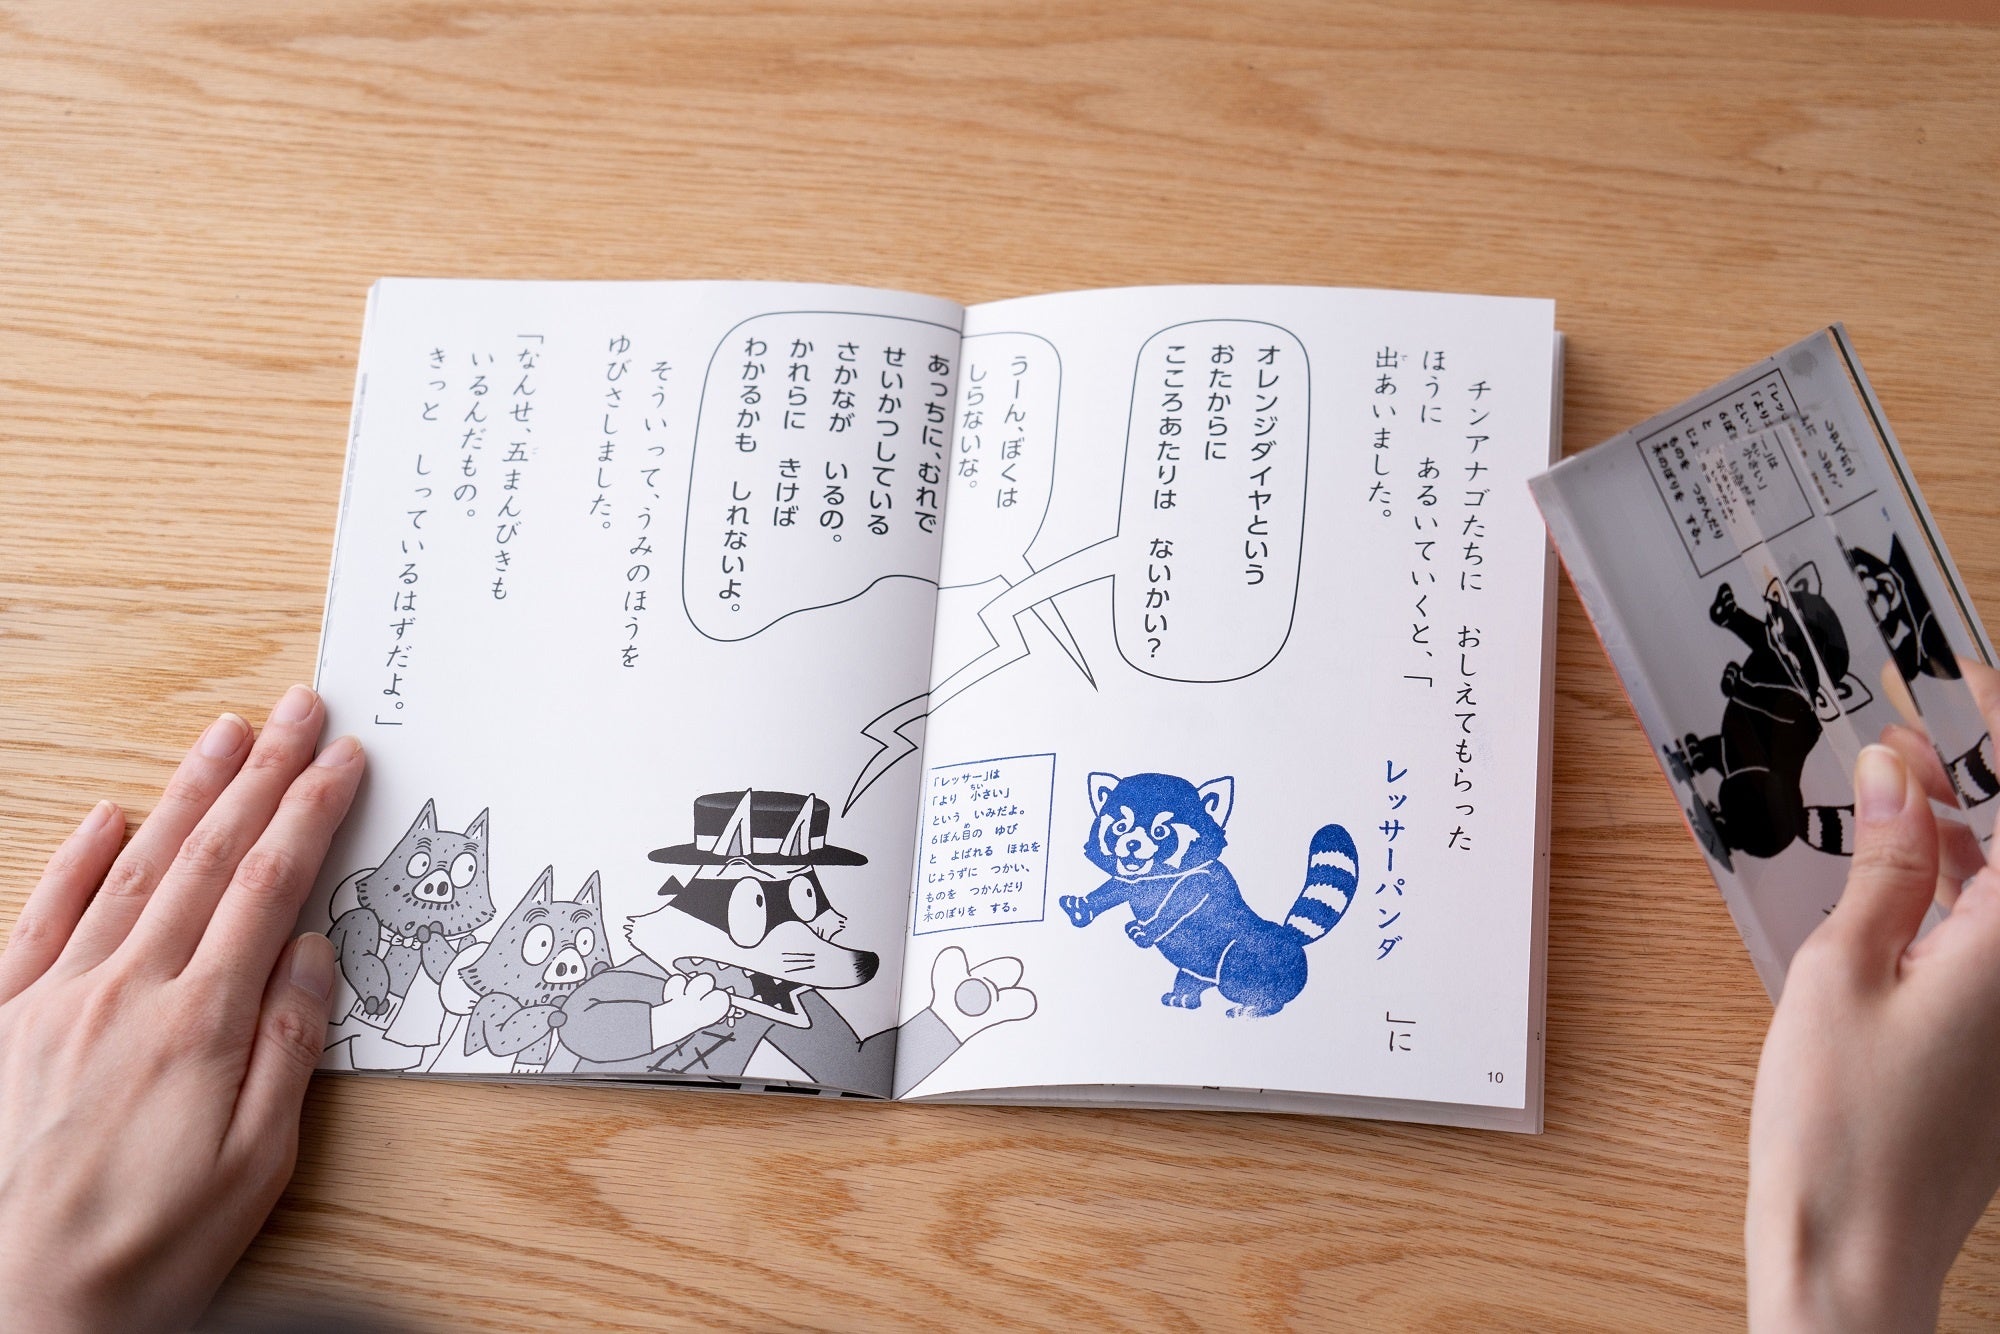 チンアナゴたちに　おしえてもらった
ほうに　あるいていくと、「　レッサーパンダ　」に
出あいました。
オレンジダイヤという
おたからに
こころあたりは　ないかい？
うーん、ぼくは
しらないな。
あっちに、むれで
せいかつしている
さかなが　いるの。
かれらに　きけば
わかるかも　しれないよ。
そういって、うみのほうを
ゆびさしました。
「なんせ、五まんびきも
いるんだもの。
きっと　しっているはずだよ。」
「レッサー」は
「より　小さい」
という　いみだよ。
6ぽん目の　ゆび
と　よばれる　ほねを
じょうずに　つかい、
ものを　つかんだり
木のぼりを　する。
10